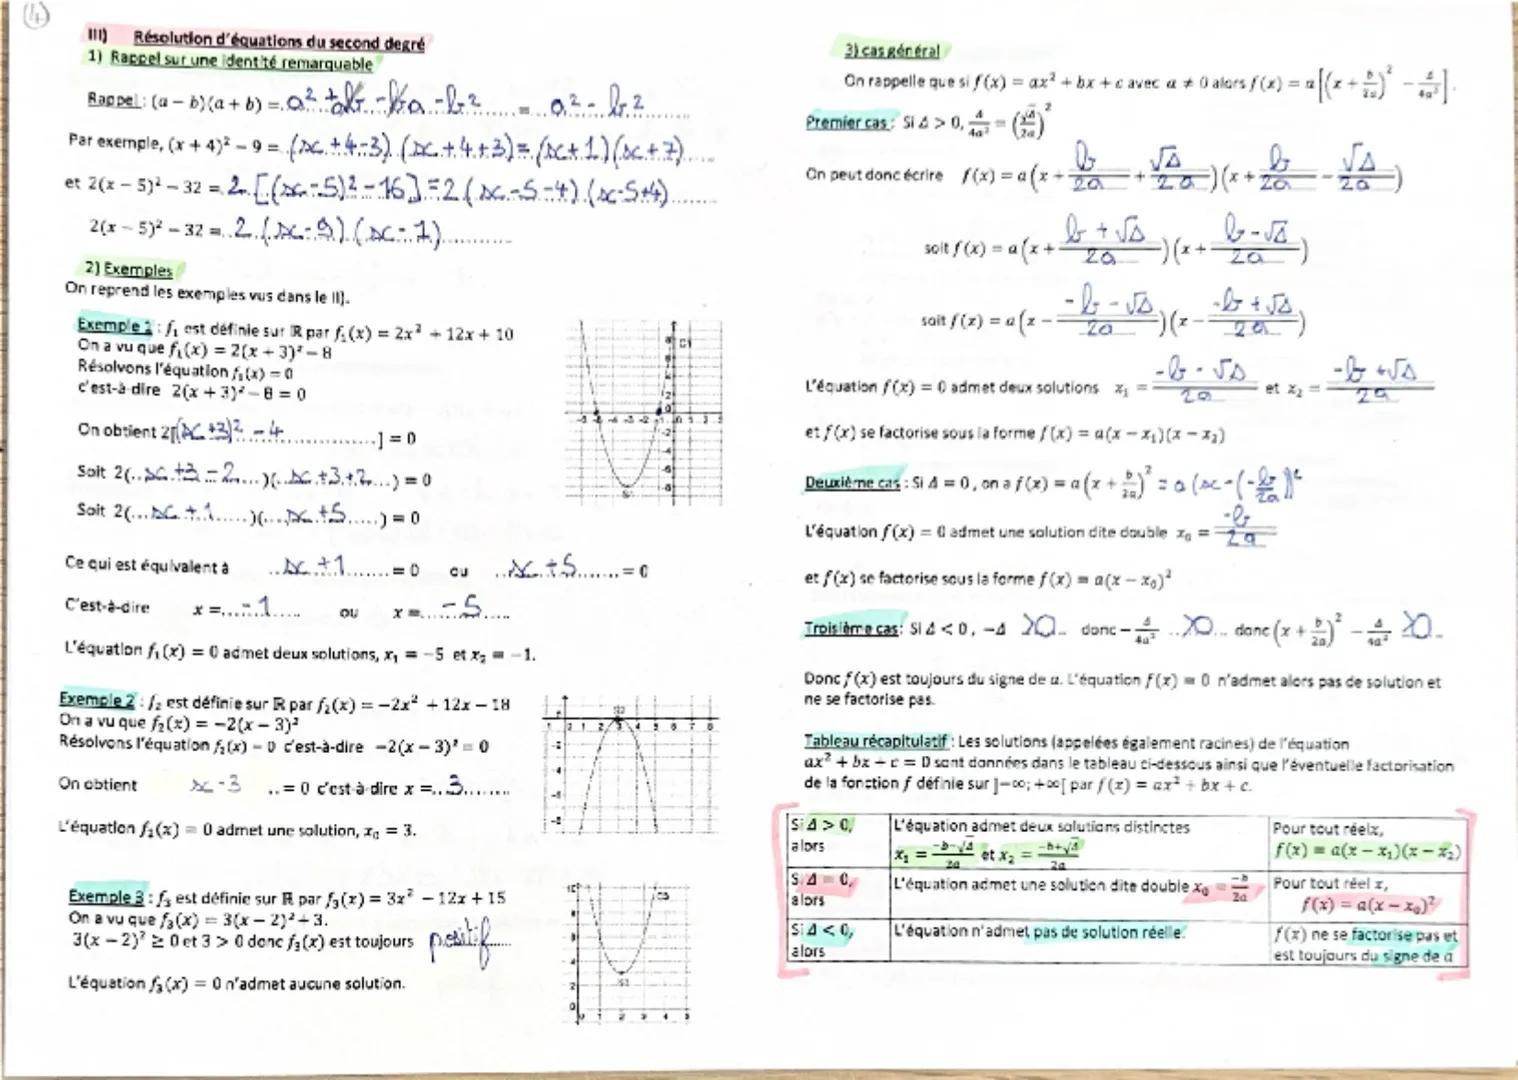 (4)
III) Résolution d'équations du second degré
1) Rappel sur une identité remarquable
Rappel : (a − b)(a + b) = a² + ab − ba − b² = a² − b²
Par exemple, (x + 4)² − 9 = (x+4−3)(x+4+3) = (x+1)(x+7)
et 2(x − 5)² − 32 = 2[(x−5)²−16] = 2(x−5−4)(x−5+4)
2(x − 5)² − 32 = 2(x−9)(x−1)
2) Exemples
On reprend les exemples vus dans le II).
Exemple 1 : f₁ est définie sur ℝ par f₁(x) = 2x² + 12x + 10
On a vu que f₁(x) = 2(x + 3)² − 8
Résolvons l'équation f₁(x) = 0
c'est-à-dire 2(x + 3)² − 8 = 0
On obtient 2[(x+3)² − 4] = 0
Soit 2(x+3−2)(x+3+2) = 0
Soit 2(x+1)(x+5) = 0
Ce qui est équivalent à x+1 = 0 ou x+5 = 0
C'est-à-dire x = −1 ou x = −5
L'équation f₁(x) = 0 admet deux solutions, x₁ = −5 et x₂ = −1.
Exemple 2 : f₂ est définie sur ℝ par f₂(x) = −2x² + 12x − 18
On a vu que f₂(x) = −2(x − 3)²
Résolvons l'équation f₂(x) = 0 c'est-à-dire −2(x − 3)² = 0
On obtient x−3 = 0 c'est-à-dire x = 3
L'équation f₂(x) = 0 admet une solution, x₀ = 3.
Exemple 3 : f₃ est définie sur ℝ par f₃(x) = 3x² − 12x + 15
On a vu que f₃(x) = 3(x − 2)² + 3.
3(x − 2)² ≥ 0 et 3 > 0 donc f₃(x) est toujours positif
L'équation f₃(x) = 0 n'admet aucune solution.
3) cas général
On rappelle que si f(x) = ax² + bx + c avec a ≠ 0 alors f(x) = a[(x + b/2a)² − Δ/4a²].
Premier cas : Si Δ > 0, Δ/4a² = (√Δ/2a)²
On peut donc écrire f(x) = a(x + b/2a + √Δ/2a)(x + b/2a − √Δ/2a)
soit f(x) = a(x + (b+√Δ)/2a)(x + (b−√Δ)/2a)
soit f(x) = a(x − (−b−√Δ)/2a)(x − (−b+√Δ)/2a)
L'équation f(x) = 0 admet deux solutions x₁ = (−b−√Δ)/2a et x₂ = (−b+√Δ)/2a
et f(x) se factorise sous la forme f(x) = a(x − x₁)(x − x₂)
Deuxième cas : Si Δ = 0, on a f(x) = a(x + b/2a)² = a(x−(−b/2a))²
L'équation f(x) = 0 admet une solution dite double x₀ = −b/2a
et f(x) se factorise sous la forme f(x) = a(x − x₀)²
Troisième cas : Si Δ < 0, −Δ >0 donc −Δ/4a² >0 donc (x + b/2a)² − Δ/4a² >0
Donc f(x) est toujours du signe de a. L'équation f(x) = 0 n'admet alors pas de solution et
ne se factorise pas.
Tableau récapitulatif : Les solutions (appelées également racines) de l'équation
ax² + bx + c = 0 sont données dans le tableau ci-dessous ainsi que l'éventuelle factorisation
de la fonction f définie sur ]−∞; +∞[ par f(x) = ax² + bx + c.
Si Δ > 0, alors L'équation admet deux solutions distinctes x₁ = (−b−√Δ)/2a et x₂ = (−b+√Δ)/2a Pour tout réel x, f(x) = a(x − x₁)(x − x₂)
Si Δ = 0, alors L'équation admet une solution dite double x₀ = −b/2a Pour tout réel x, f(x) = a(x − x₀)²
Si Δ < 0, alors L'équation n'admet pas de solution réelle. f(x) ne se factorise pas et est toujours du signe de a